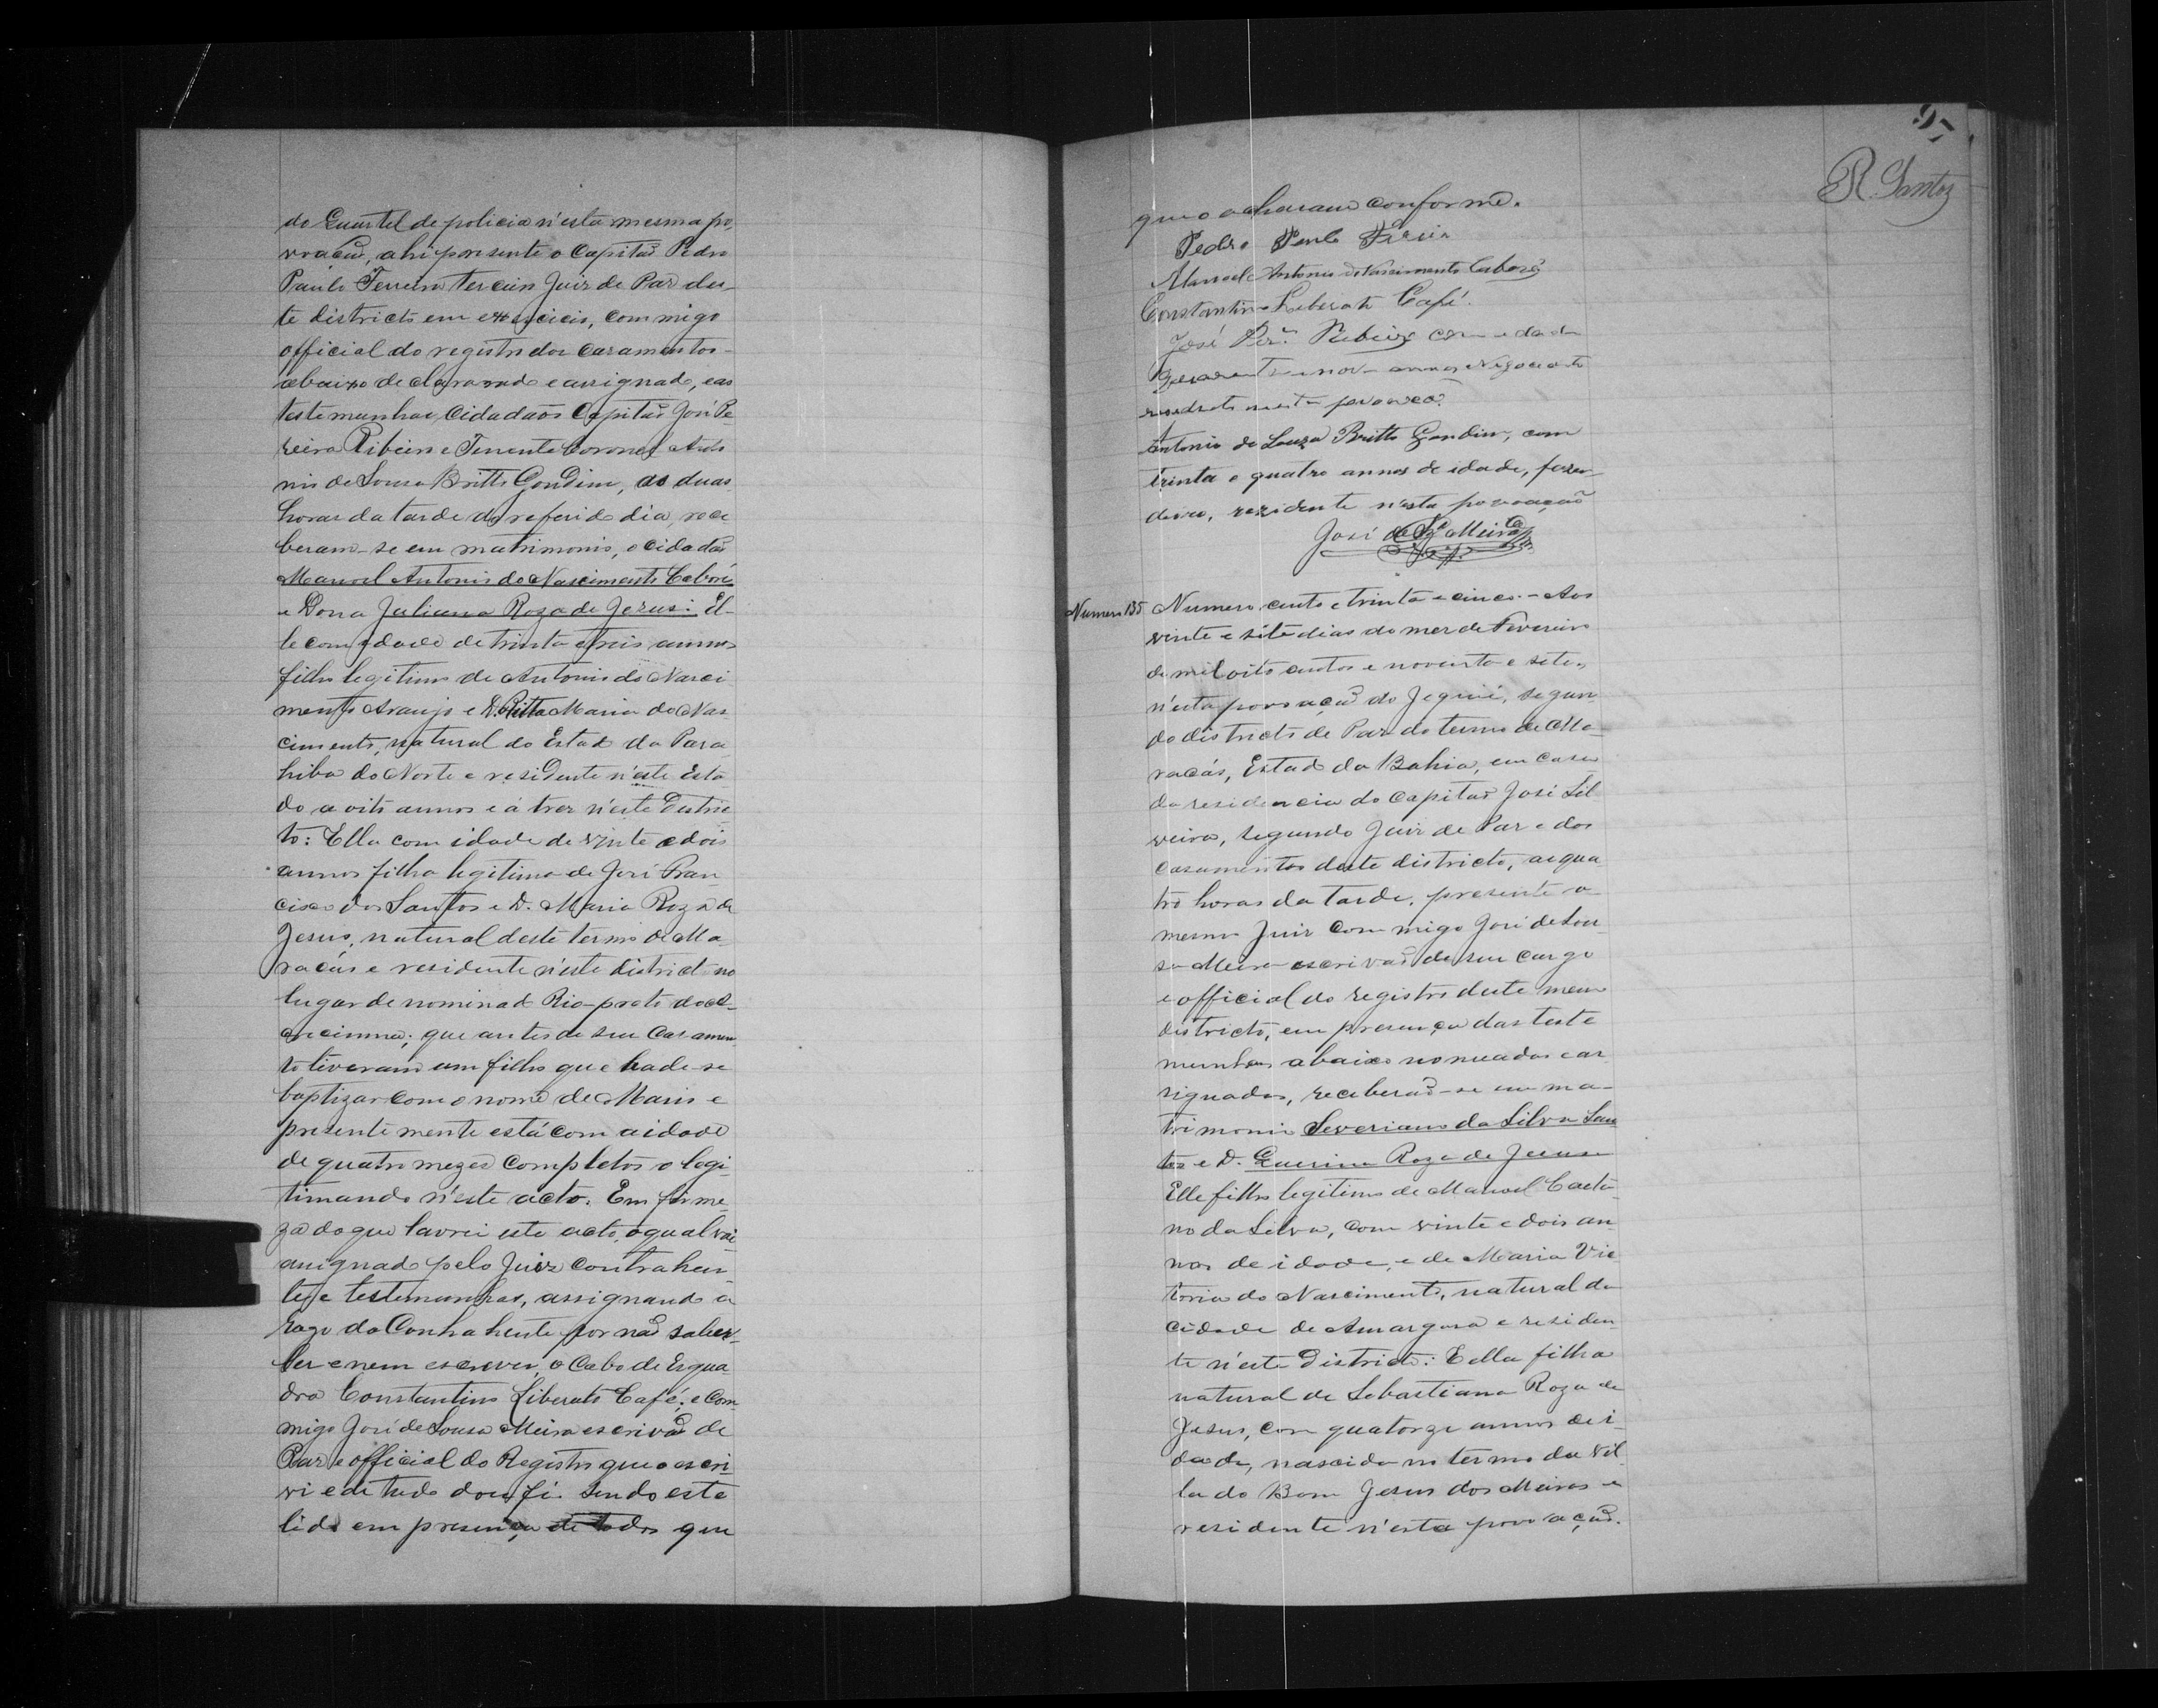 do Quartel de policia n'esta mesma po,
voação, ahi presente o Capitão Pedro
Paulo Ferreira terceiro Juiz de Paz des-
te districto em exercicio, commigo
official do registro dos Casamentos
abaixo declarado e assignado, e as
testemunhas Cidadãos Capitão José Pe-
reira Ribeiro e Tenente Coronel Anto
nio de Sousa Britto Gondim, as duas
horas da tarde do referido dia, rece
beram-se em matrimonio, o cidadão
Manoel Antonio do Nascimento Caboré
e Dona Juliana Roza de Jesus: El-
le com idade de trinta e treis annos
filho legitimo de Antonio do Nasci
mento Araujo e D. Ritta Maria do Nas
cimento, natural do Estado da Para
hiba do Norte e residente n'este Esta
do a oito annos e á trez n'este Distric
to: Ella com idade de vinte e dois
annos filha legitima de José Fran-
cisco dos Santos e D. Maria Roza de
Jesus, natural deste termo de Ma
racás e residente n'este districto no
lugar denominado Rio-preto do
que antes de seu Casamen
to tiveram um filho que hade-se
baptizar com o nome de Mario e
presentemente está com a idade
de quatro mezes completos o legi-
timando n'este acto. Em firme-
za do que lavrei este acto, o qual vai
assignado pelo Juiz contrahen-
tes e testemunhas, assignando a
rogo da Contrahente por não saber
ler e nem escrever, o Cabo de Esqua
dra Constantino Liberato Café; e Com
migo José de Sousa Meira escrivão de
Paz e official do Registro que o escri-
vi e de tudo dou fé. Sendo este
lido em presença de todos que
97
R. Santos
que o acharam conforme.
Pedro Paulo Ferreira
Manoel Antonio do Nascimento Caboré
Constantino Liberato Café.
José Perª Ribeiro com edade
quarenta e nove annos Negociante
residente nesta povoação.
Antonio de Souza Britto Gondim, com
trinta e quatro annos de idade, fazen-
deiro, rezidente n'esta povoação
José de Sza Meira
Numero 135 Numero cento e trinta e cinco. - Aos
vinte e sete dias do mez de Fevereiro
de mil oito centos e noventa e sete,
n'esta povoação do Jequié, segun-
do districto de Paz do termo de Ma-
racás, Estado da Bahia, em casa
da residencia do Capitão José Sil
veira, segundo Juiz de Paz e dos
casamentos deste districto, as qua
tro horas da tarde, presente o
mesmo Juiz commigo José de Sou-
sa Meira escrivão de seu cargo
e official do registro deste mesmo
districto, em presença das teste
munhas abaixo nomeadas e as
signadas, receberão-se em ma-
trimonio Severiano da Silva San
tos e D. Guerina Roza de Jesus
Elle filho legitimo de Manoel Caeta
no da Silva, com vinte e dois an
nos de idade, e de Maria Vic
toria do Nascimento, natural da
cidade de Amargosa e residen-
te n'este Districto: E ella filha
natural de Sebastiana Roza de
Jesus, com quatorze annos de i-
dade, nascida no termo da Vil-
la do Bom Jesus dos Meiras e
residente n'esta povoação.